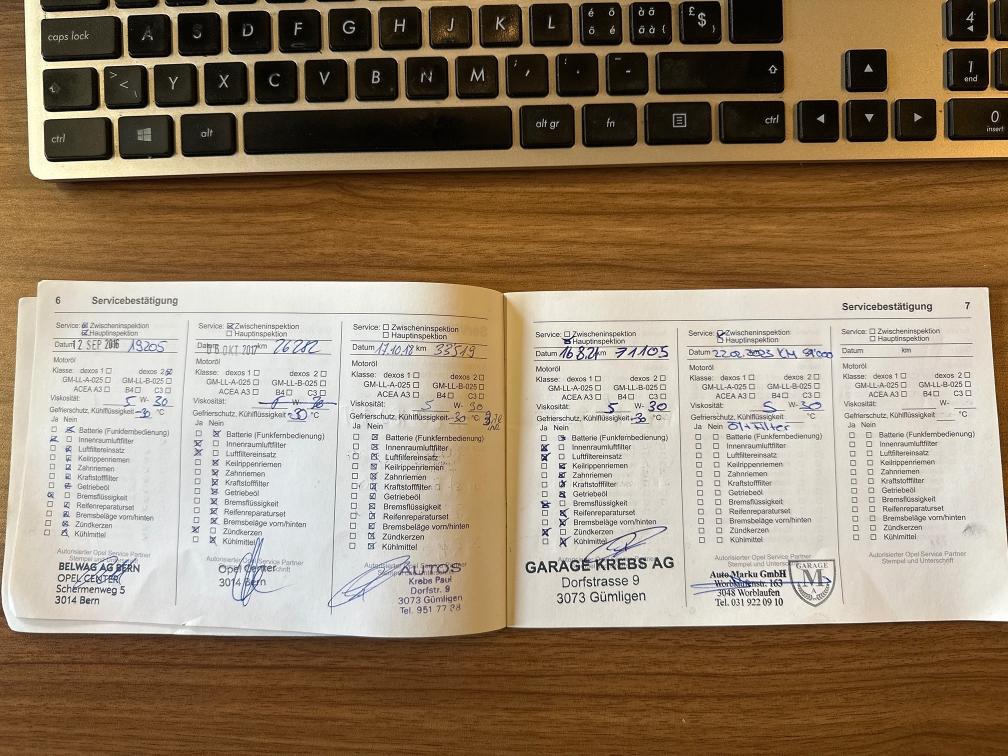 caps lock A S D F G H J K L é ö è à ä £ $
> < Y X C V B N M ; , : . _ -
ctrl alt alt gr fn ctrl
4
1 end
0 insert
6 Servicebestätigung
Service: Zwischeninspektion
Hauptinspektion
Datum 12 SEP 2016 19205
Motoröl
Klasse: dexos 1 dexos 2
GM-LL-A-025 GM-LL-B-025
ACEA A3 B4 C3
Viskosität: 5 W- 30
Gefrierschutz, Kühlflüssigkeit -30 °C
Ja Nein
Batterie (Funkfernbedienung)
Innenraumluftfilter
Luftfiltereinsatz
Keilrippenriemen
Zahnriemen
Kraftstofffilter
Getriebeöl
Bremsflüssigkeit
Reifenreparaturset
Bremsbeläge vorn/hinten
Zündkerzen
Kühlmittel
Autorisierter Opel Service Partner
Stempel und Unterschrift
BELWAG AG BERN
OPEL CENTER
Schermenweg 5
3014 Bern
Service: Zwischeninspektion
Hauptinspektion
Datum 06 OKT 2017 km 26282
Motoröl
Klasse: dexos 1 dexos 2
GM-LL-A-025 GM-LL-B-025
ACEA A3 B4 C3
Viskosität: W-
Gefrierschutz, Kühlflüssigkeit -30 °C
Ja Nein
Batterie (Funkfernbedienung)
Innenraumluftfilter
Luftfiltereinsatz
Keilrippenriemen
Zahnriemen
Kraftstofffilter
Getriebeöl
Bremsflüssigkeit
Reifenreparaturset
Bremsbeläge vorn/hinten
Zündkerzen
Kühlmittel
Autorisierter Opel Service Partner
Stempel und Unterschrift
Opel Center
3014 Bern
Service: Zwischeninspektion
Hauptinspektion
Datum 17.10.18 km 33519
Motoröl
Klasse: dexos 1 dexos 2
GM-LL-A-025 GM-LL-B-025
ACEA A3 B4 C3
Viskosität: 5 W- 30
Gefrierschutz, Kühlflüssigkeit -30 °C
Ja Nein
Batterie (Funkfernbedienung)
Innenraumluftfilter
Luftfiltereinsatz
Keilrippenriemen
Zahnriemen
Kraftstofffilter
Getriebeöl
Bremsflüssigkeit
Reifenreparaturset
Bremsbeläge vorn/hinten
Zündkerzen
Kühlmittel
Autorisierter Opel Service Partner
Stempel und Unterschrift
AUTOS
Krebs Paul
Dorfstr. 9
3073 Gümligen
Tel. 951 77 38
Servicebestätigung 7
Service: Zwischeninspektion
Hauptinspektion
Datum km 71105
Motoröl
Klasse: dexos 1 dexos 2
GM-LL-A-025 GM-LL-B-025
ACEA A3 B4 C3
Viskosität: 5 W- 30
Gefrierschutz, Kühlflüssigkeit -30 °C
Ja Nein
Batterie (Funkfernbedienung)
Innenraumluftfilter
Luftfiltereinsatz
Keilrippenriemen
Zahnriemen
Kraftstofffilter
Getriebeöl
Bremsflüssigkeit
Reifenreparaturset
Bremsbeläge vorn/hinten
Zündkerzen
Kühlmittel
Autorisierter Opel Service Partner
GARAGE KREBS AG
Dorfstrasse 9
3073 Gümligen
Service: Zwischeninspektion
Hauptinspektion
Datum 22.02.2023 KM 91'000
Motoröl
Klasse: dexos 1 dexos 2
GM-LL-A-025 GM-LL-B-025
ACEA A3 B4 C3
Viskosität: 5 W- 30
Gefrierschutz, Kühlflüssigkeit °C
Ja Nein Öl+Filter
Batterie (Funkfernbedienung)
Innenraumluftfilter
Luftfiltereinsatz
Keilrippenriemen
Zahnriemen
Kraftstofffilter
Getriebeöl
Bremsflüssigkeit
Reifenreparaturset
Bremsbeläge vorn/hinten
Zündkerzen
Kühlmittel
Autorisierter Opel Service Partner
Stempel und Unterschrift
Auto Marku GmbH
Worblaufenstr. 163
3048 Worblaufen
Tel. 031 922 09 10
GARAGE
M
A
Service: Zwischeninspektion
Hauptinspektion
Datum km
Motoröl
Klasse: dexos 1 dexos 2
GM-LL-A-025 GM-LL-B-025
ACEA A3 B4 C3
Viskosität: W-
Gefrierschutz, Kühlflüssigkeit °C
Ja Nein
Batterie (Funkfernbedienung)
Innenraumluftfilter
Luftfiltereinsatz
Keilrippenriemen
Zahnriemen
Kraftstofffilter
Getriebeöl
Bremsflüssigkeit
Reifenreparaturset
Bremsbeläge vorn/hinten
Zündkerzen
Kühlmittel
Autorisierter Opel Service Partner
Stempel und Unterschrift